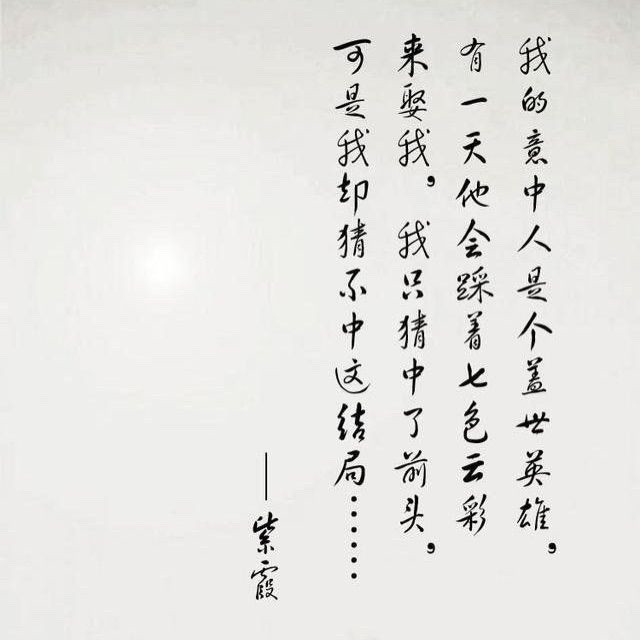 我的意中人是个盖世英雄，
有一天他会踩着七色云彩
来娶我，我只猜中了前头，
可是我却猜不中这结局……
——紫霞